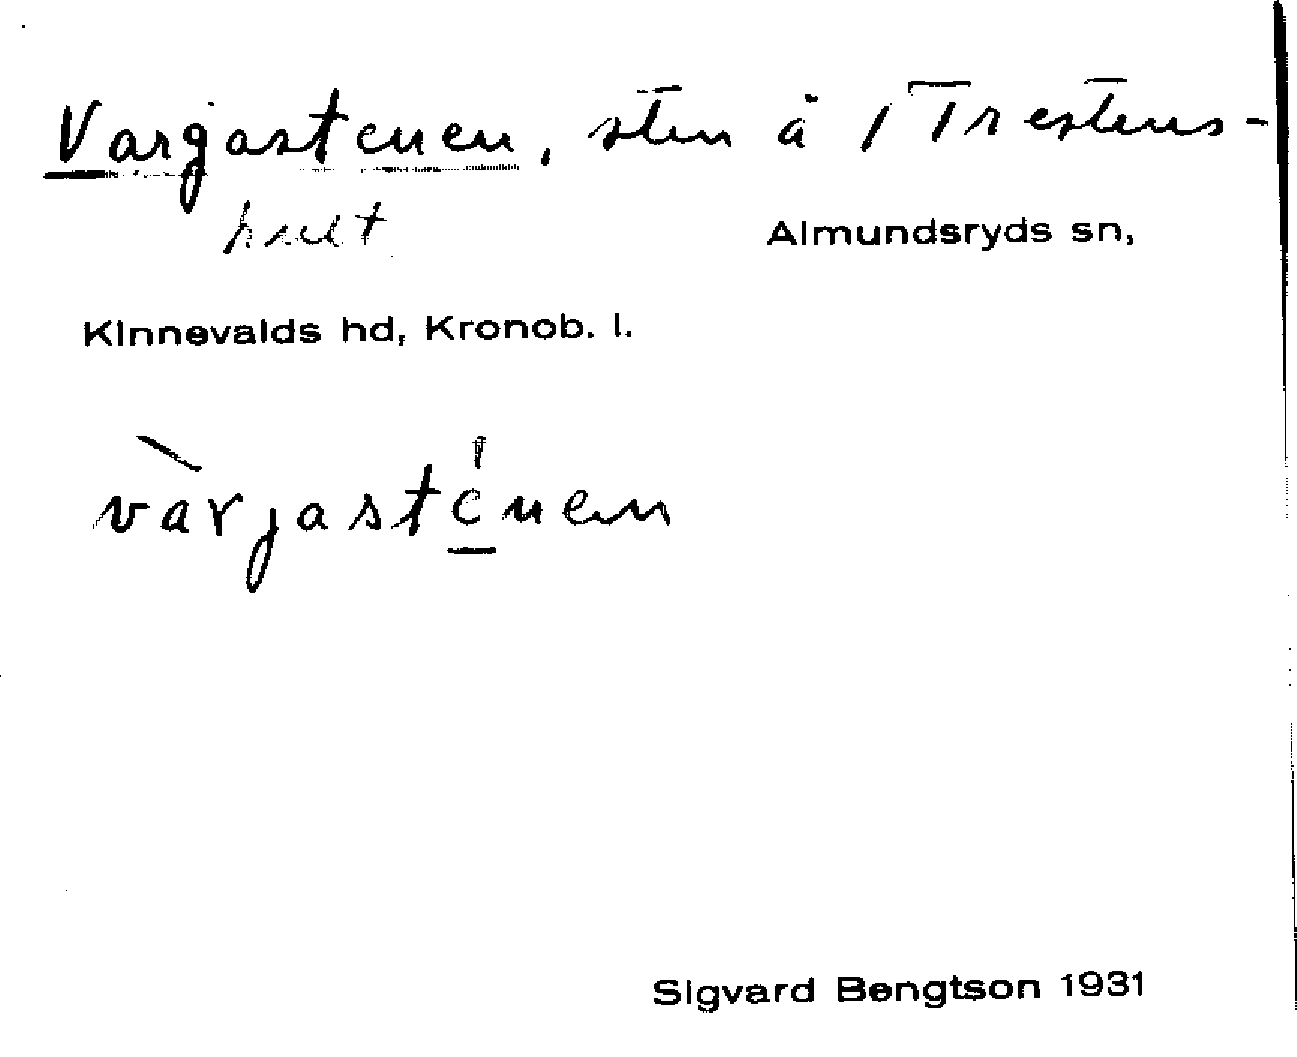 Vargastenen, sten å 1 Trestens-
hult
Almundsryds sn,
Kinnevalds hd, Kronob. l.
vàrjasténen
Sigvard Bengtson 1931